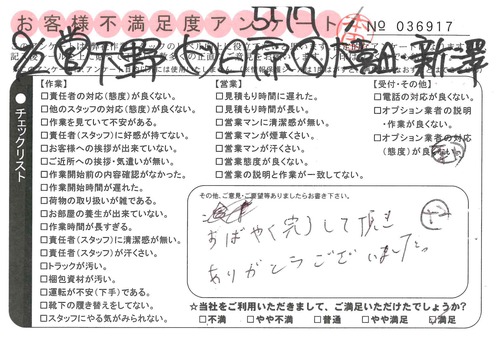 お客様不満足度アンケート
5-17
№ 036917
チェックリスト
【作業】
□責任者の対応(態度)が良くない。
□他のスタッフの対応(態度)が良くない。
□作業を見ていて不安がある。
□責任者(スタッフ)に好感が持てない。
□お客様への挨拶が出来ていない。
□ご近所への挨拶・気遣いが無い。
□作業開始前の内容確認がなかった。
□作業開始時間が遅れた。
□荷物の取り扱いが雑である。
□お部屋の養生が出来ていない。
□作業時間が長すぎる。
□責任者(スタッフ)に清潔感が無い。
□責任者(スタッフ)が汗くさい。
□トラックが汚い。
□梱包資材が汚い。
□運転が不安(下手)である。
□靴下の履き替えをしてない。
□スタッフにやる気がみられない。
【営業】
□営業マンの対応(態度)が良くない。
□見積もり時間に遅れた。
□見積もり時間が長い。
□営業マンに清潔感が無い。
□営業マンが煙草くさい。
□営業マンが汗くさい。
□営業態度が良くない。
□営業の説明と作業が一致してない。
【受付・その他】
□電話の対応が良くない。
□オプション業者の説明
・作業が良くない。
□オプション業者の対応
(態度)が良くない。
その他、ご意見・ご要望等ありましたらお書き下さい。
すばやく完了して頂き
ありがとうございました。
☆当社をご利用いただきまして、ご満足いただけたでしょうか?
□不満 □やや不満 □普通 □やや満足 □満足